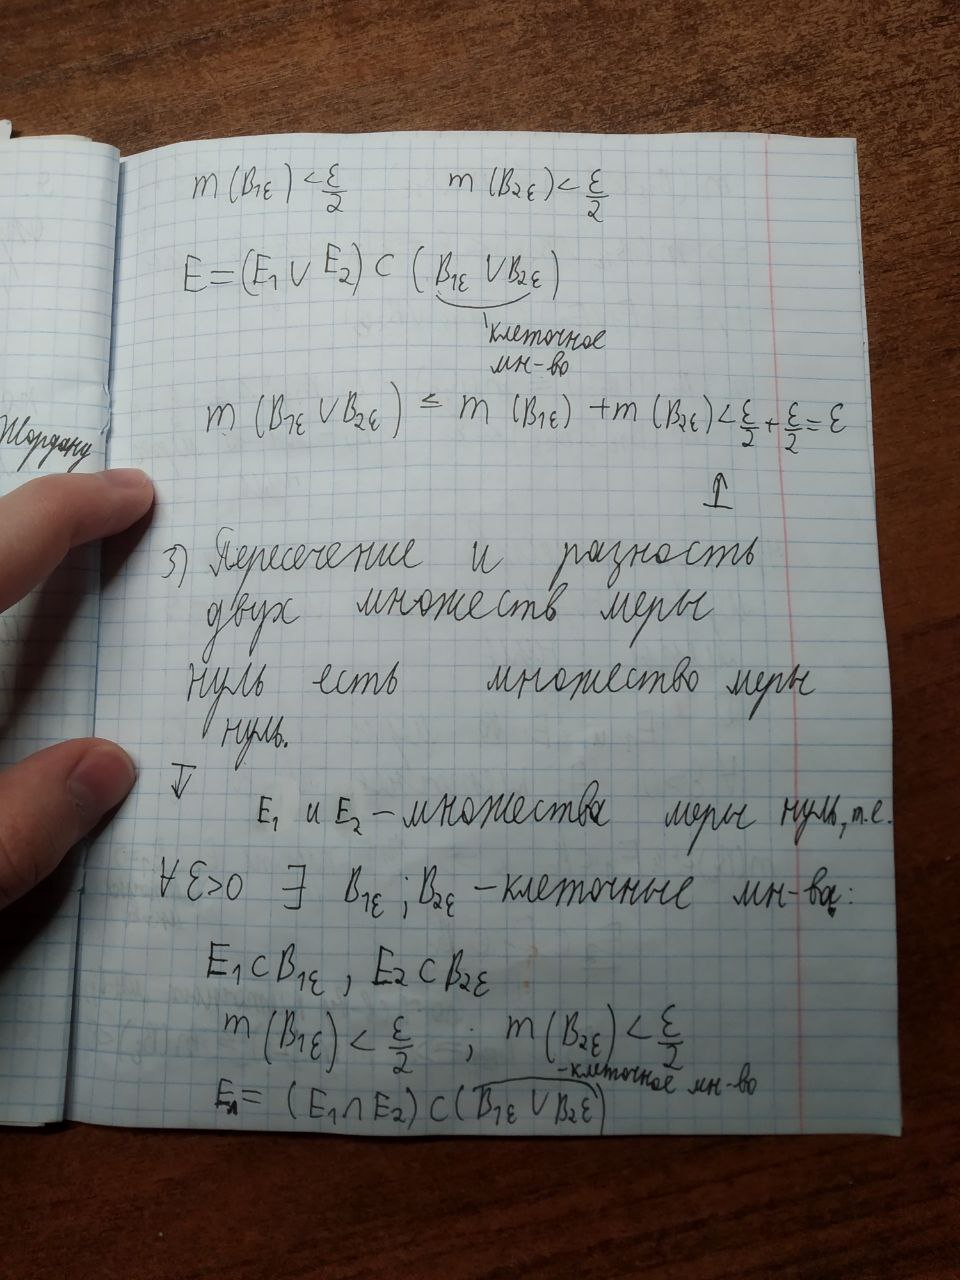 m (B₁ε) < ε/2 m (B₂ε) < ε/2
E = (E₁ ∪ E₂) ⊂ (B₁ε ∪ B₂ε)
клеточное
мн-во
m (B₁ε ∪ B₂ε) ≤ m (B₁ε) + m (B₂ε) < ε/2 + ε/2 = ε
Жордану
3) Пересечение и разность
двух множеств меры
нуль есть множество меры
нуль.
E₁ и E₂ – множества меры нуль, т.е.
∀ ε>0 ∃ B₁ε ; B₂ε – клеточные мн-ва:
E₁ ⊂ B₁ε , E₂ ⊂ B₂ε
m (B₁ε) < ε/2 ; m (B₂ε) < ε/2
– клеточное мн-во
E∩ = (E₁ ∩ E₂) ⊂ (B₁ε ∪ B₂ε)